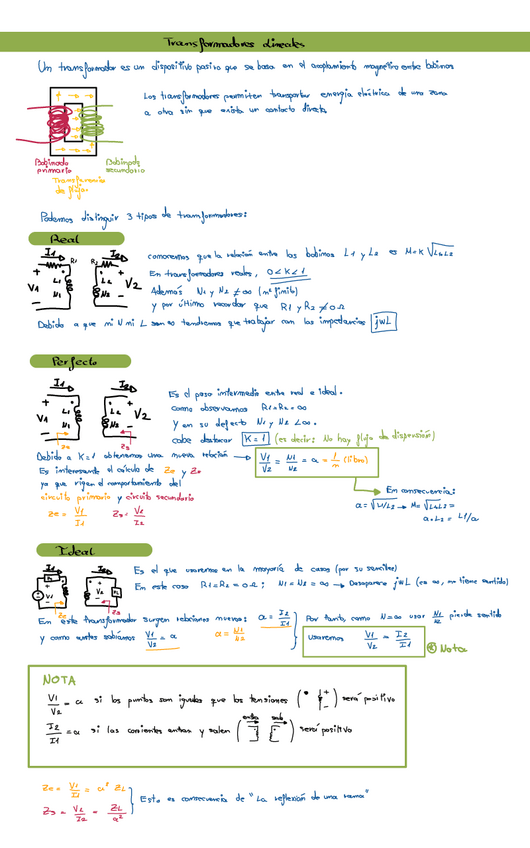 Transformadores lineales
Un transformador es un dispositivo pasivo que se basa en el acoplamiento magnetico entre bobinas
Los transformadores permiten transportar energía eléctrica de una zona
a otra sin que exista un contacto directo.
Bobinado
primario
Bobinado
secundario
Transferencia
de flujo
Podemos distinguir 3 tipos de transformadores:
Real
I1 I2
R1 R2
V1 L1 L2 V2
N1 N2
conocemos que la relación entre las bobinas L1 y L2 es M=K√L1L2
En transformadores reales, 0<K<1
Además N1 y N2 ≠ ∞ (nº finito)
y por último recordar que R1 y R2 ≠ 0Ω
Debido a que ni N ni L son ∞ tendremos que trabajar con las impedancias jwL
Perfecto
I1 I2
V1 L1 L2 V2
N1 N2
Ze Zs
Es el paso intermedio entre real e ideal.
como observamos
y en su defecto N1 y N2 ∠∞.
cabe destacar K=1 (es decir: No hay flujo de dispersión)
Debido a K=1 obtenemos una nueva relación → V1/V2 = N1/N2 = a = 1/n (libro)
Es interesante el cálculo de Ze y Zs
ya que rigen el comportamiento del
circuito primario y circuito secundario
Ze = V1/I1 Zs = V2/I2
En consecuencia:
Ideal
I1 I2
V1 V2
Ze Zs
Es el que usaremos en la mayoría de casos (por su sencillez)
En este caso R1=R2=0Ω; N1=N2=∞ → Desaparece jwL (es ∞, no tiene sentido)
En este transformador surgen relaciones nuevas: a = I2/I1
y como antes sabíamos V1/V2 = a a = N1/N2
Por tanto, como N=∞ usar N1/N2 pierde sentido
usaremos V1/V2 = I2/I1
Nota
NOTA
V1/V2 = a si los puntos son iguales que las tensiones (• +/-) será positivo
I2/I1 = a si las corrientes entran y salen (entra sale) será positivo
Ze = V1/I1 = a² ZL
Zs = V2/I2 = ZL/a²
Esto es consecuencia de "La reflexión de una rama"